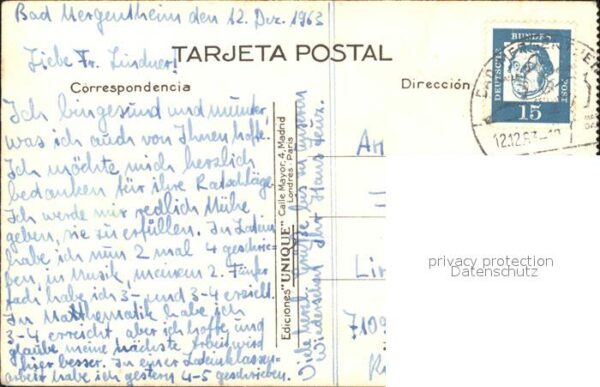 Bad Mergentheim den 12. Dez. 1963
Liebe Fr. Lindner!
TARJETA POSTAL
Correspondencia
Dirección
Ich bin gesund und munter
was ich auch von Ihnen hoffe.
Ich möchte mich herzlich
bedanken für ihre Ratschläge
Ich werde mir redlich Mühe
geben, sie zu erfüllen. In Latein
habe ich nun 2 mal 4 geschrie-
ben, in Musik, meinem 2. Fünfer
fach habe ich 3- und 3-4 erzielt.
In Mathematik habe ich
3-4 erreicht, aber ich hoffe und
glaube meine nächste Arbeit wird
hier besser. In einer Lateinklassen-
arbeit habe ich gestern 4-5 geschrieben.
Viele herzl. Grüße bis zu unserem
Wiedersehen Ihr Hans
Ediciones "UNIQUE" Calle Mayor, 4, Madrid
Londres - Paris
DEUTSCHE BUNDESPOST
15
12.12.63
An
Lin
7109
privacy protection
Datenschutz